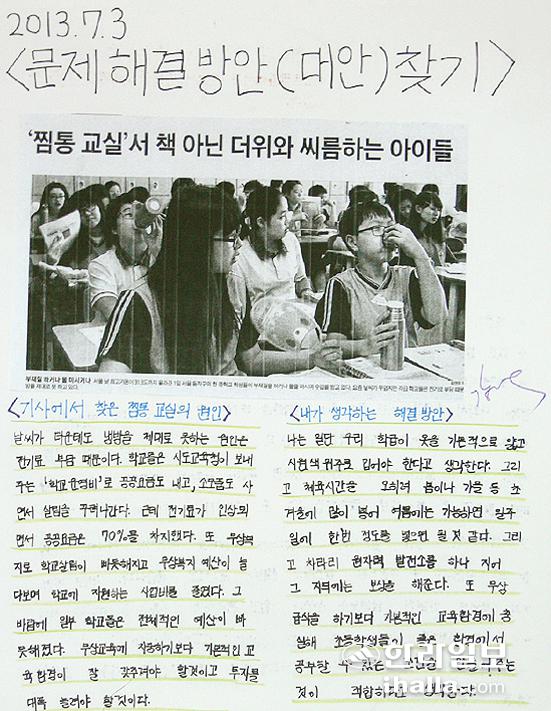 2013.7.3
<문제 해결 방안(대안) 찾기>
'찜통 교실'서 책 아닌 더위와 씨름하는 아이들
부채질 하거나 물 마시거나
<기사에서 찾은 찜통 교실의 원인>
날씨가 더운데도 냉방을 제대로 못하는 원인은
전기료 부담 때문이다. 학교들은 시도교육청이 보내
주는 '학교운영비'로 공공요금도 내고, 소모품도 사
면서 살림을 꾸려나간다. 근데 전기료가 인상되
면서 공공요금은 70%를 차지했다. 또 무상복
지로 학교살림이 빠듯해지고 무상복지 예산이 늘
다보며 학교에 지원하는 사업비를 줄였다. 그
바람에 일부 학교들은 전체적인 예산이 빠
듯해졌다. 무상교육에 치중하기보다 기본적인 교
육환경이 잘 갖추어야 할것이고 투자를
대폭 늘려야 할것이다.
<내가 생각하는 해결 방안>
나는 일단 우리 학급이 옷을 기본적으로 얇고
시원색 위주로 입어야 한다고 생각한다. 그리
고 체육시간을 오히려 봄이나 가을 등 초
겨울에 많이 넣어 여름에는 가능하면 일주
일에 한번 정도를 넣으면 될 것 같다. 그리
고 차라리 원자력 발전소를 하나 지어
그 지역에는 보상을 해준다. 또 무상
급식을 하기보다 기본적인 교육환경에 충
실해 초등학생들이 좋은 환경에서
공부할 수 있는 만들어주는
것이 적합하다고 생각한다.
한라일보
ihalla.com